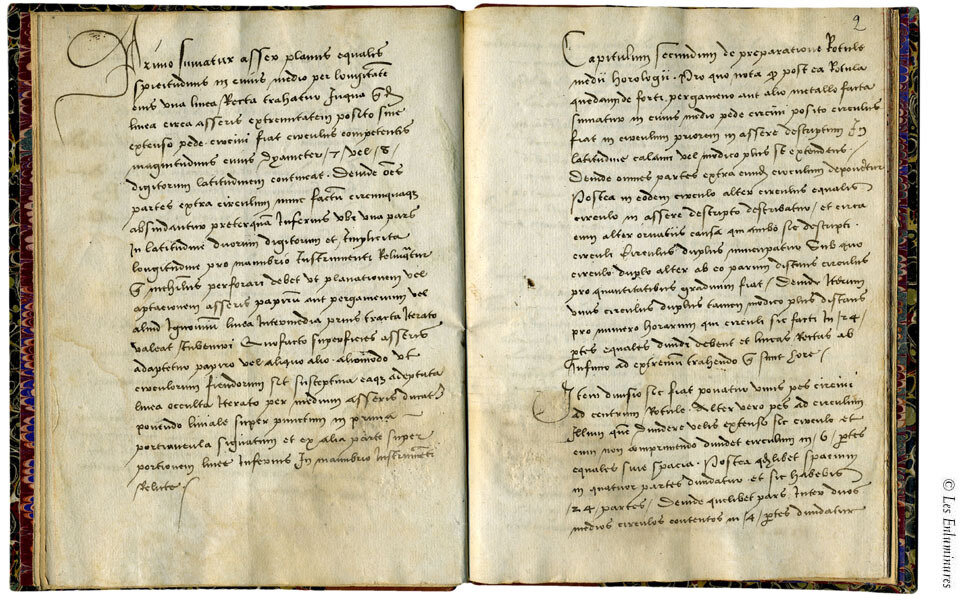 Primo sumatur asser planus equalis
spissitudinis in cuius medio per longitudinem
eius una linea Recta trahatur in qua
linea circa asseris extremitatem posito sine
extenso pede circini fiat circulus competentis
magnitudinis cuius dyameter / 7 / vel / 8 /
digitorum latitudinem contineat. Deinde oes
partes extra circulum nunc factu circumquaq
absindantur preterquam Inferius ubi una pars
In latitudine duorum digitorum et Implicita
longitudine pro manubrio Instrumenti
nichilus perforari debet ut planationem vel
aptacionem asseris papirum aut pergamenum vel
aliud linea Intermedia prius tracta Iterato
valeat Inveniri Quo facto superficies asseris
adaptetur papiro vel aliquo alio ut
circulorum fiendorum sit susceptiva eaque adeptata
linea occulta Iterato per medium asseris
ponendo liniale super punctum in prima
portiuncula signatum et ex alia parte super
portionem linee Inferius In manubrio Instrumeti
Relicte /
2
Capitulum secundum de preparatione Rotule
medii horologii. Pro quo nota q post ea Rotula
quedam de forti pergameno aut alio metallo facta
sumatur in cuius medio pede circini posito circulus
fiat in circulum priorem in assere descriptum In
latitudine calami vel modico plus se extendens.
Deinde omnes partes extra eund circulum
Postea in eodem circulo alter circulus equalis
circulo in assere descripto describatur / et circa
eum alter ornatus causa qui ambo sic descripti.
circuli circulus duplus nuncupatur Sub quo
circulo duplo alter ab eo parum distans circulus
pro quantitatibus graduum fiat / Deinde Iterum
unus circulus duplus tamen modico plus distans
pro numero horarum qui circuli sic facti In / 24 /
ptes equales dividi debent et lineas Rectas ab
Infimo ad extremum trahendo sunt hore /
Item divisio sic fiat ponatur unus pes circini
ad centrum Rotule. Alter vero pes ad circulum
Illum que dividere velis extenso sic circulo et
eum non comprimendo dividet circulum in / 6 / ptes
equales sive spacia. Postea qdlibet spacium
in quatuor partes dividatur et sic habebis
24 partes / Deinde quelibet pars Inter duos
medios circulos contentos in / 4 / ptes dividatur
© Les Enluminures